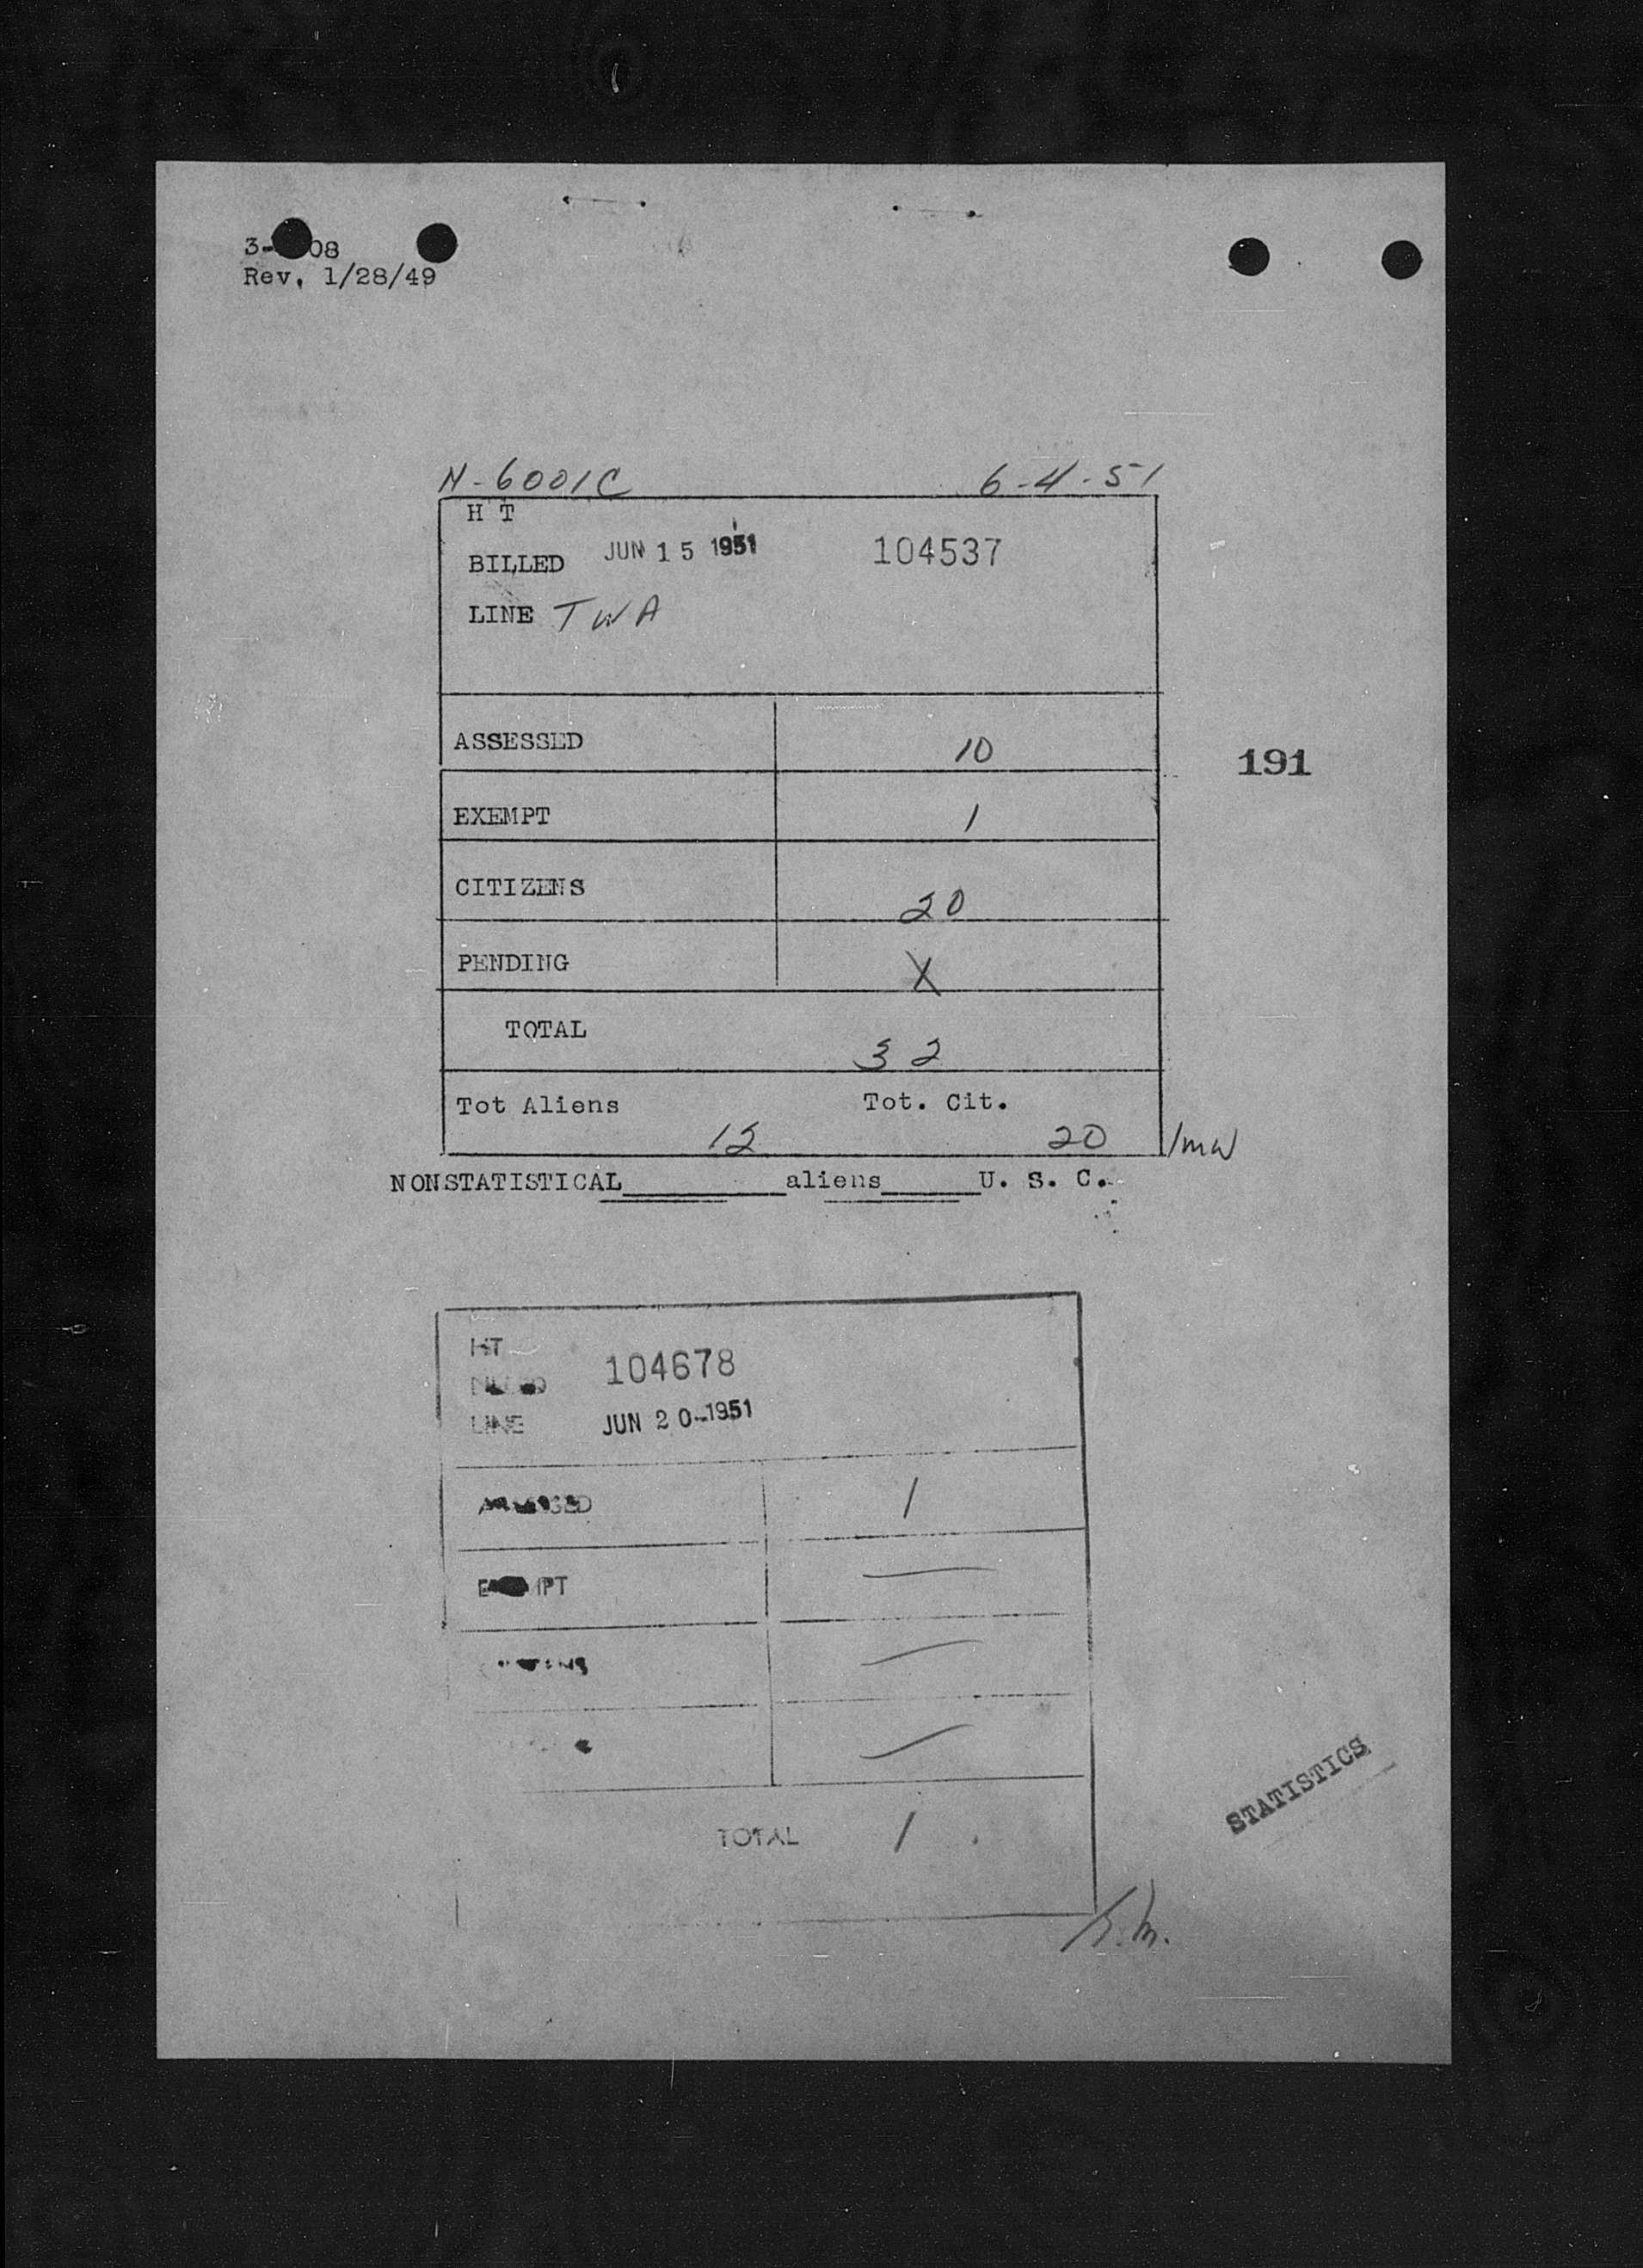 3- 08
Rev. 1/28/49
N-6001C 6-4-51
H T
BILLED JUN 15 1951 104537
LINE TWA
ASSESSED 10
191
EXEMPT 1
CITIZENS 20
PENDING X
TOTAL 32
Tot Aliens Tot. Cit.
12 20 /mw
NONSTATISTICAL aliens U. S. C.
HT
104678
LINE JUN 20 1951
1
EXEMPT —
—
—
STATISTICS
TOTAL 1